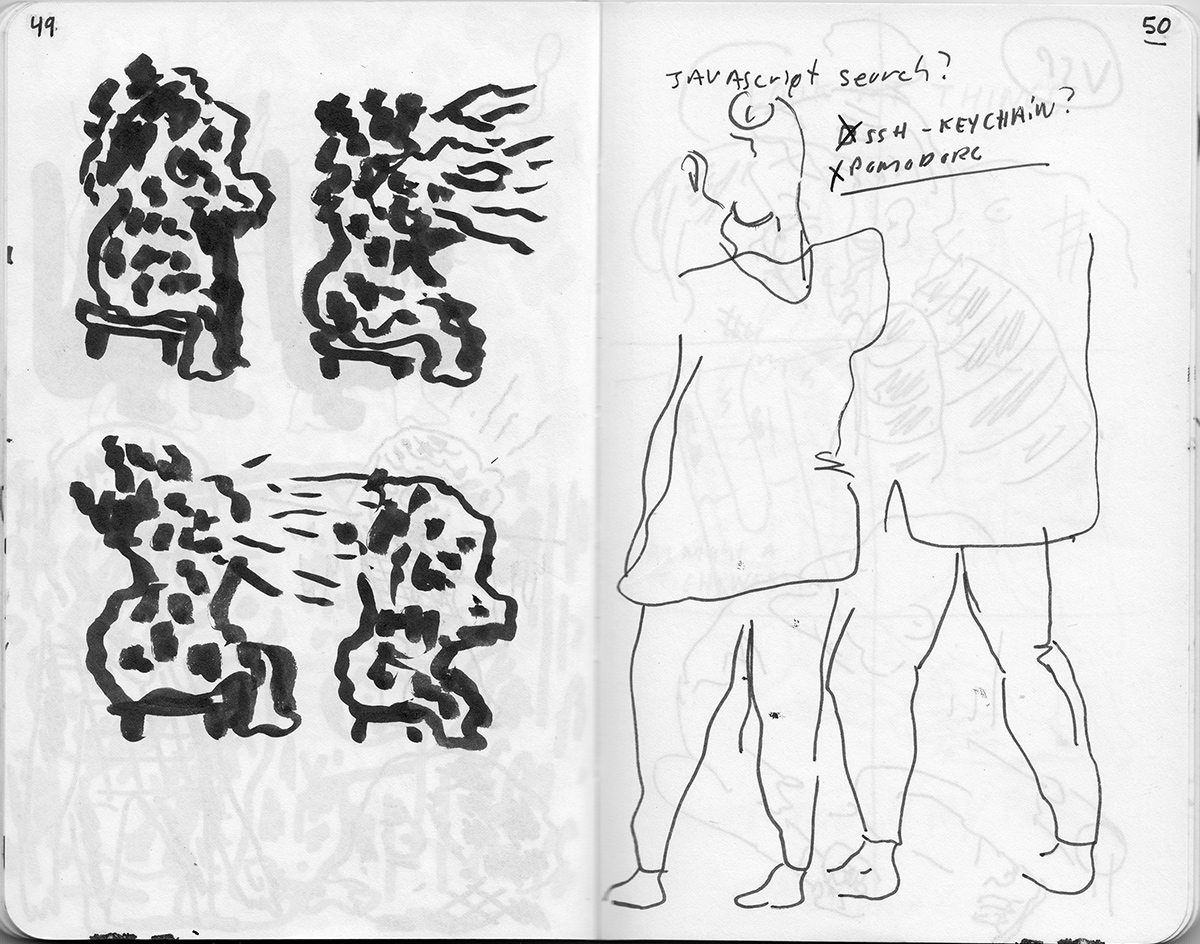 49
50
JAVAscript search?
SSH - KEYCHAIN?
X POMODORO